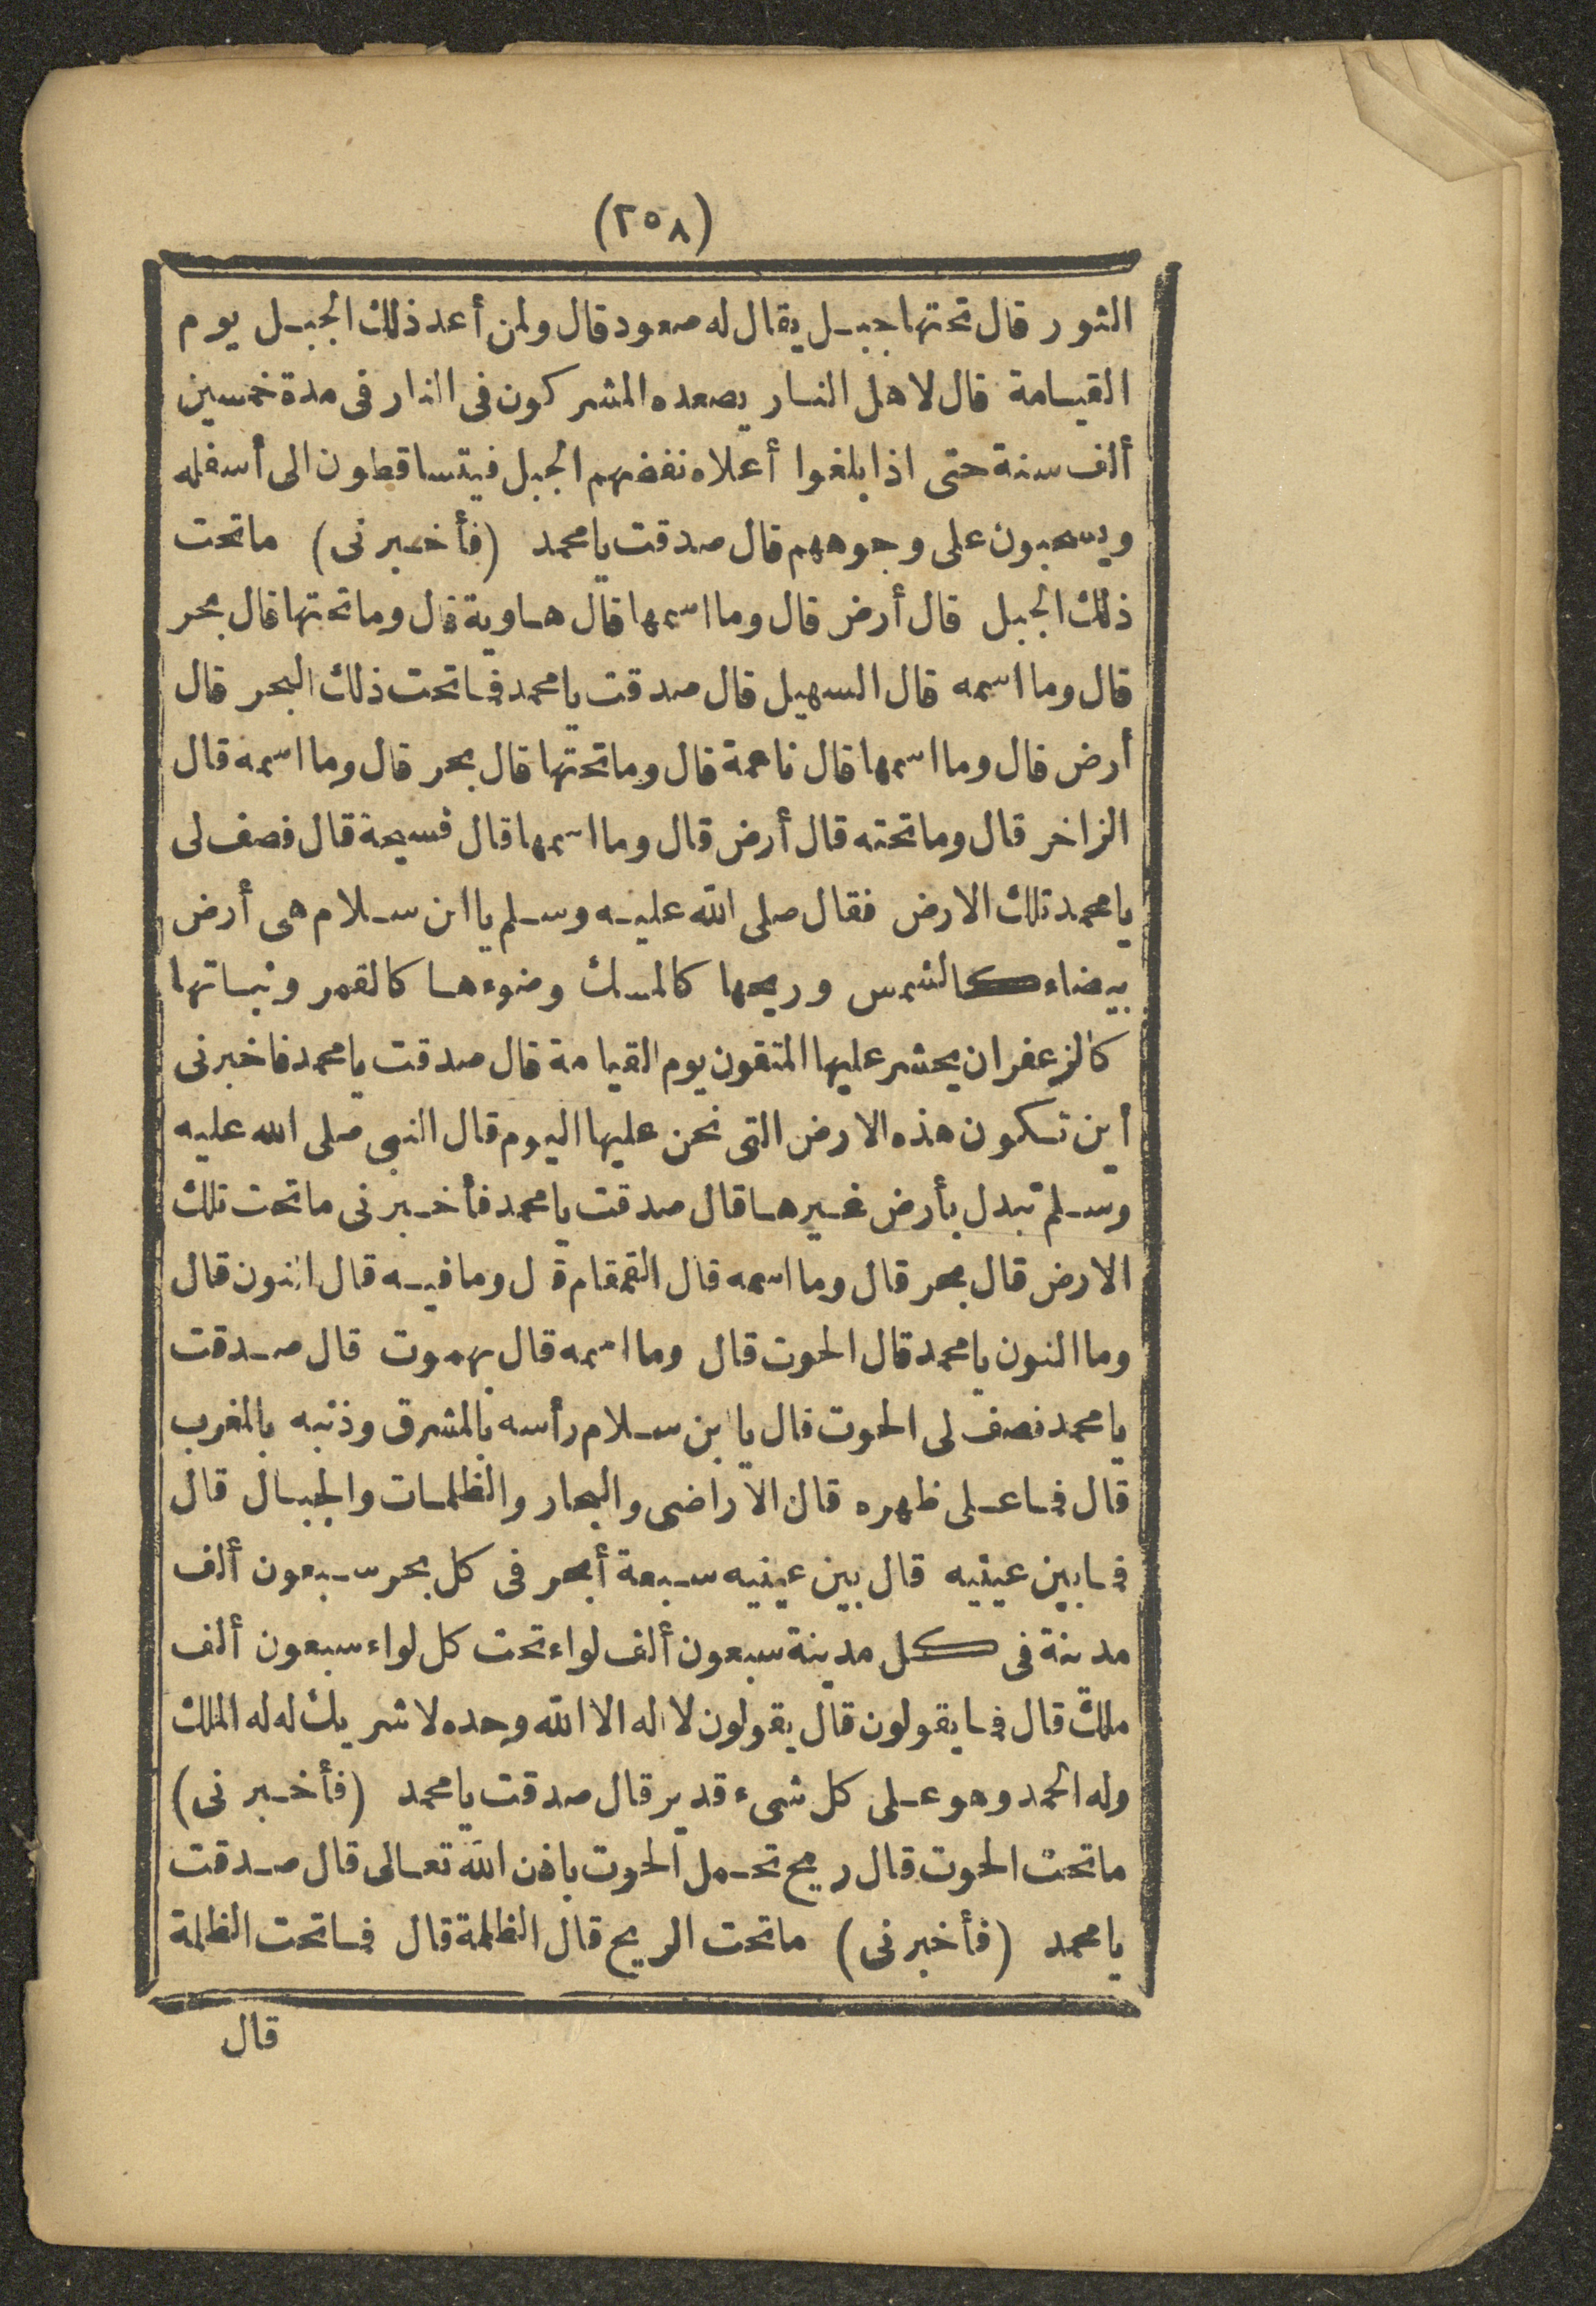 (٢٥٨)
الثور قال تحتها جبل يقال له صعود قال ولمن أعد ذلك الجبل يوم
القيامة قال لاهل النار يصعده المشركون فى النار فى مدة خمسين
ألف سنة حتى اذا بلغوا أعلاه نفضهم الجبل فيتساقطون الى أسفله
ويسحبون على وجوههم قال صدقت يا محمد (فأخبرنى) ما تحت
ذلك الجبل قال أرض قال وما اسمها قال هاوية قال وما تحتها قال بحر
قال وما اسمه قال السهيل قال صدقت يا محمد فما تحت ذلك البحر قال
أرض قال وما اسمها قال ناعمة قال وما تحتها قال بحر قال وما اسمه قال
الزاخر قال وما تحته قال أرض قال وما اسمها قال فسيحة قال فصف لى
يا محمد تلك الارض فقال صلى الله عليه وسلم يا ابن سلام هى أرض
بيضاء كالشمس وريحها كالمسك وضوءها كالقمر ونباتها
كالزعفران يحشر عليها المتقون يوم القيامة قال صدقت يا محمد فاخبرنى
أين تكون هذه الارض التى نحن عليها اليوم قال النبى صلى الله عليه
وسلم تبدل بأرض غيرها قال صدقت يا محمد فأخبرنى ما تحت تلك
الارض قال بحر قال وما اسمه قال القمقام قال وما فيه قال النون قال
وما النون يا محمد قال الحوت قال وما اسمه قال بهموت قال صدقت
يا محمد فصف لى الحوت قال يا ابن سلام رأسه بالمشرق وذنبه بالمغرب
قال فما على ظهره قال الاراضى والبحار والظلمات والجبال قال
فما بين عينيه قال بين عينيه سبعة أبحر فى كل بحر سبعون ألف
مدينة فى كل مدينة سبعون ألف لواء تحت كل لواء سبعون ألف
ملك قال فما يقولون قال يقولون لا اله الا الله وحده لا شريك له له الملك
وله الحمد وهو على كل شىء قدير قال صدقت يا محمد (فأخبرنى)
ما تحت الحوت قال ريح تحمل الحوت باذن الله تعالى قال صدقت
يا محمد (فأخبرنى) ما تحت الريح قال الظلمة قال فما تحت الظلمة
قال